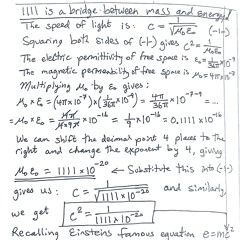 1111 is a bridge between mass and energy
The speed of light is: C = 1/√(μ₀ε₀) (-1-)
Squaring both sides of (-1-) gives c² = 1/(μ₀ε₀)
The electric permittivity of free space is
The magnetic permeability of free space is μ₀ = 4π×10⁻⁷
Multiplying μ₀ by ε₀ gives:
μ₀ε₀ = (4π×10⁻⁷)(1/36π ×10⁻⁹) = 4π/36π ×10⁻⁷⁻⁹ = ...
= μ₀ε₀ = 4π/4×9π ×10⁻¹⁶ = 1/9 ×10⁻¹⁶ = 0.1111×10⁻¹⁶
We can shift the decimal point 4 places to the
right and change the exponent by 4, giving
μ₀ε₀ = 1111×10⁻²⁰ ← Substitute this into (-1-)
gives us: C = 1/√(1111×10⁻²⁰) and similarly
we get C² = 1/(1111×10⁻²⁰)
Recalling Einsteins famous equation e=mc²